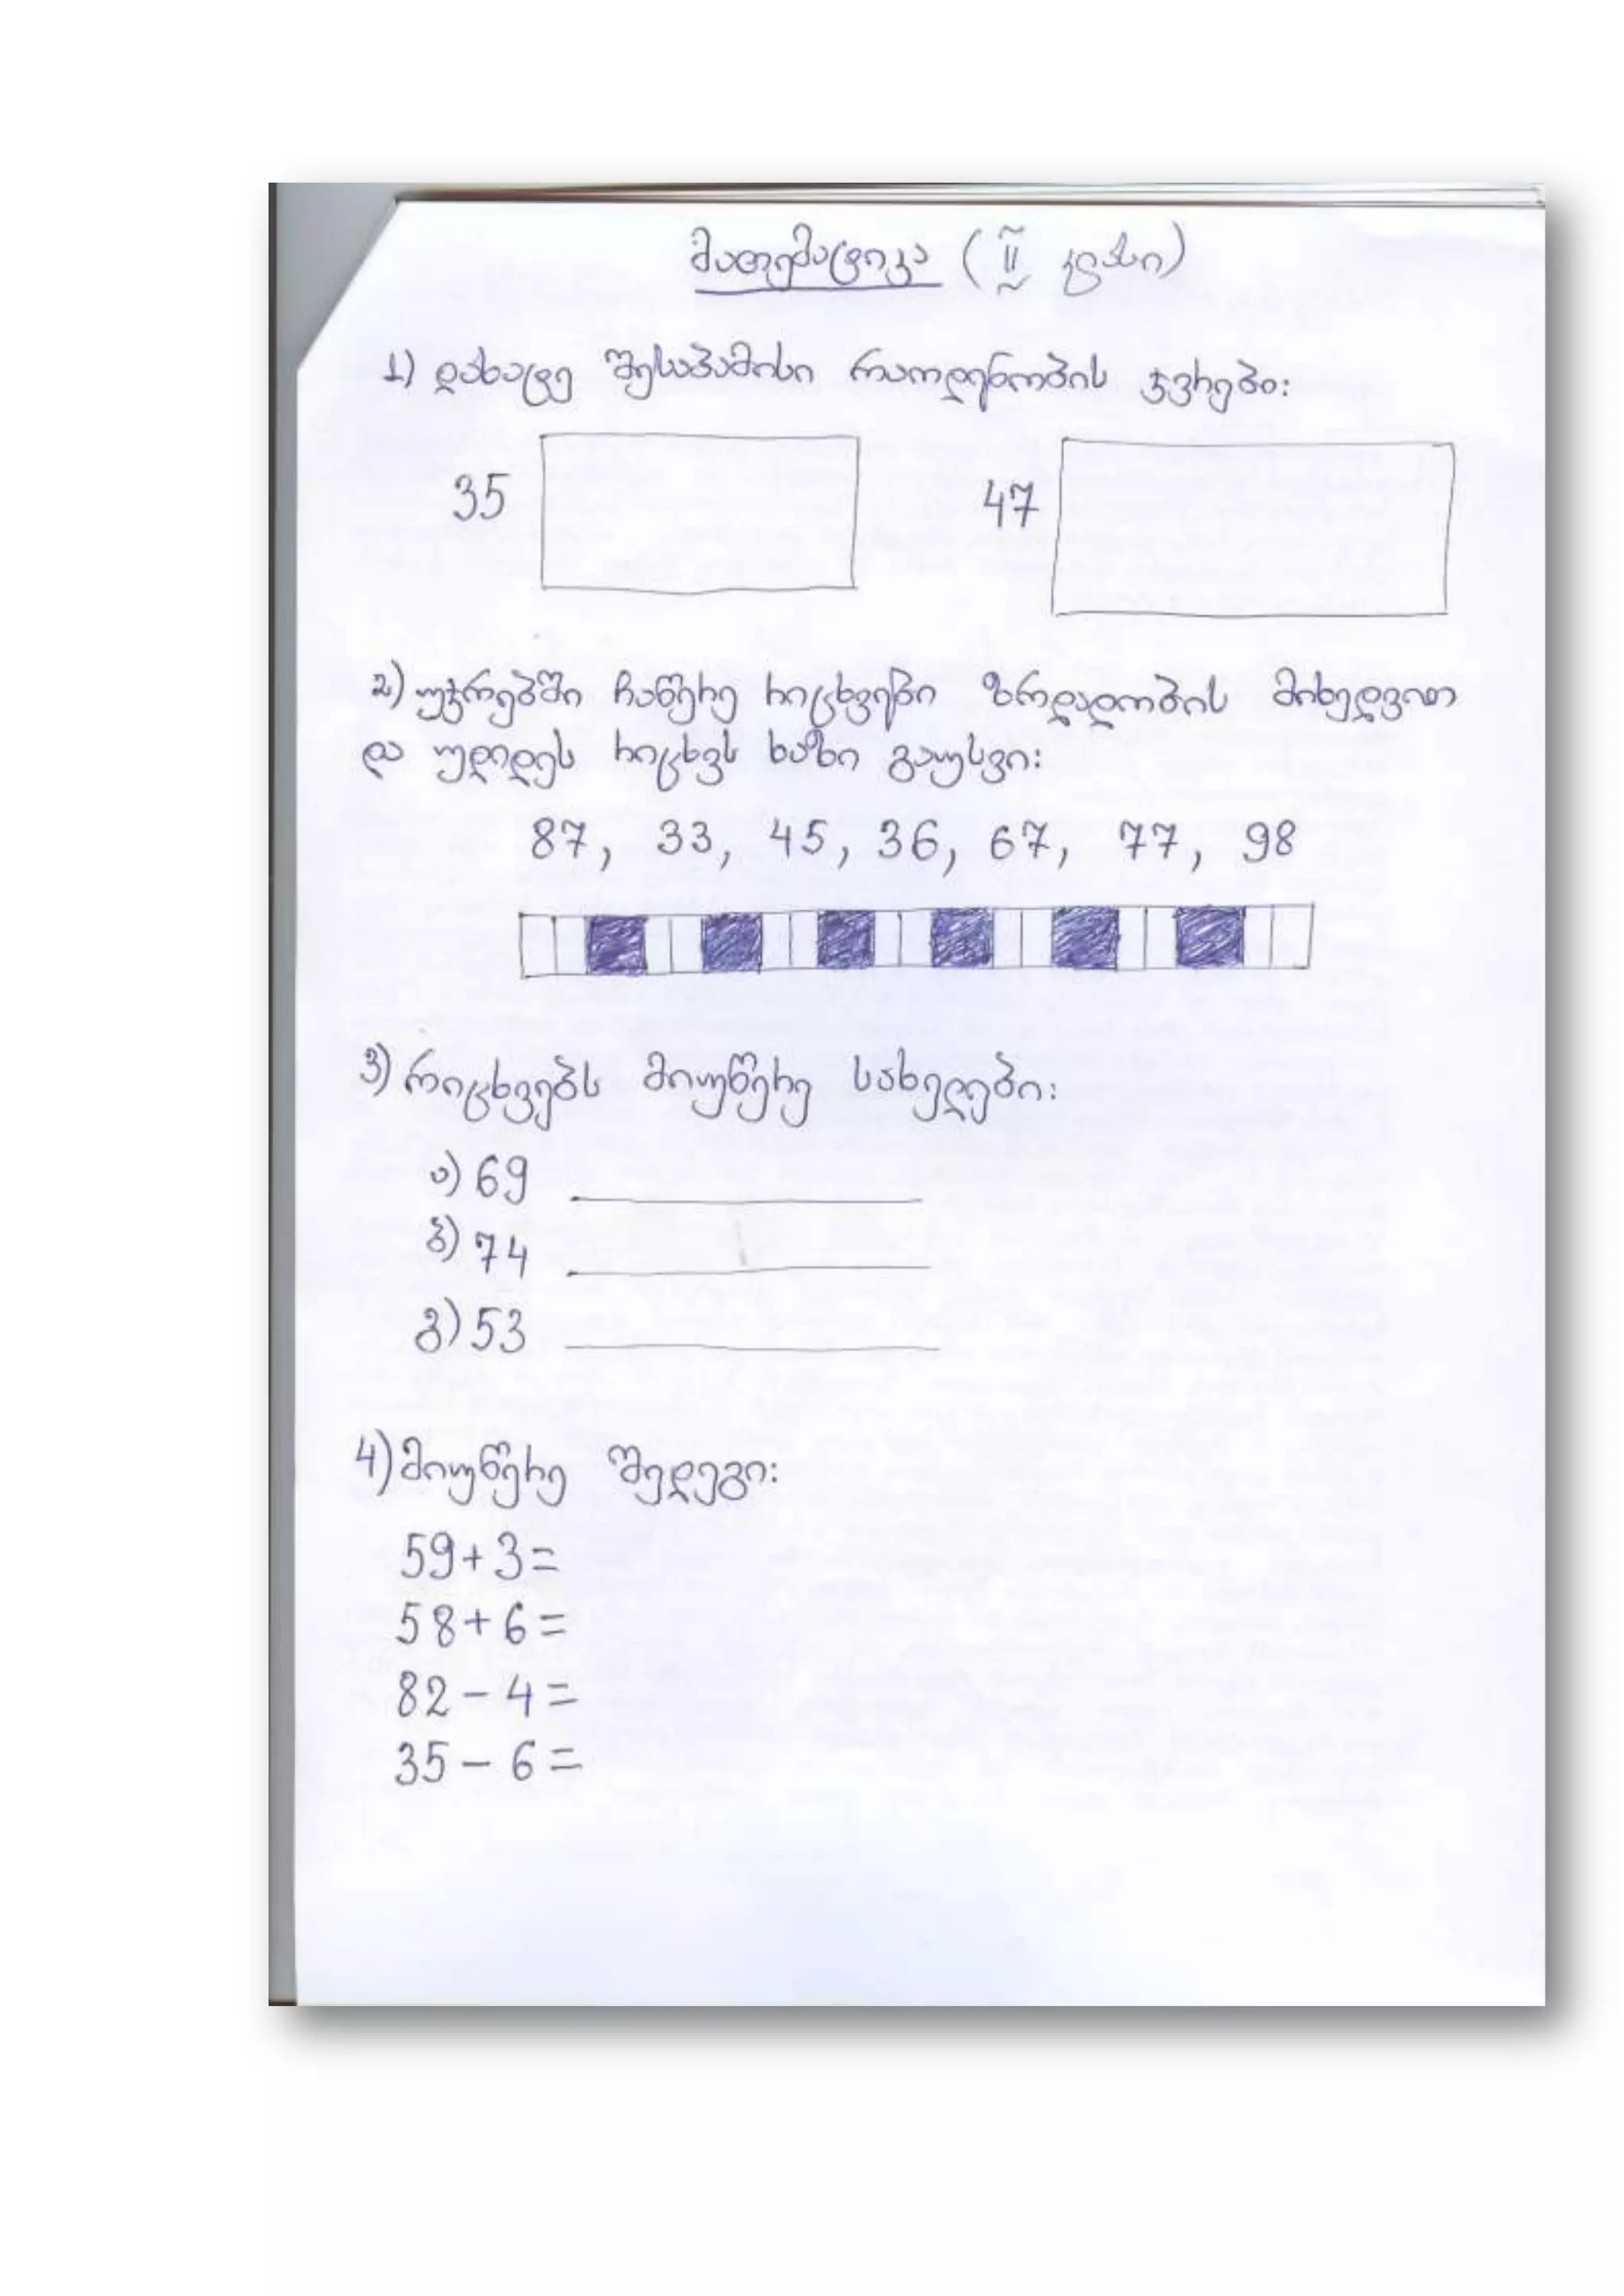 მათემატიკა (II კლასი)
1) დახატე შესაბამისი რაოდენობის ჯვრები:
35 47
2) უჯრებში ჩაწერე რიცხვები ზრდადობის მიხედვით
და უდიდეს რიცხვს ხაზი გაუსვი:
87, 33, 45, 36, 67, 77, 98
3) რიცხვებს მიუწერე სახელები:
ა) 69
ბ) 74
გ) 53
4) მიუწერე შედეგი:
59+3=
58+6=
82-4=
35-6=